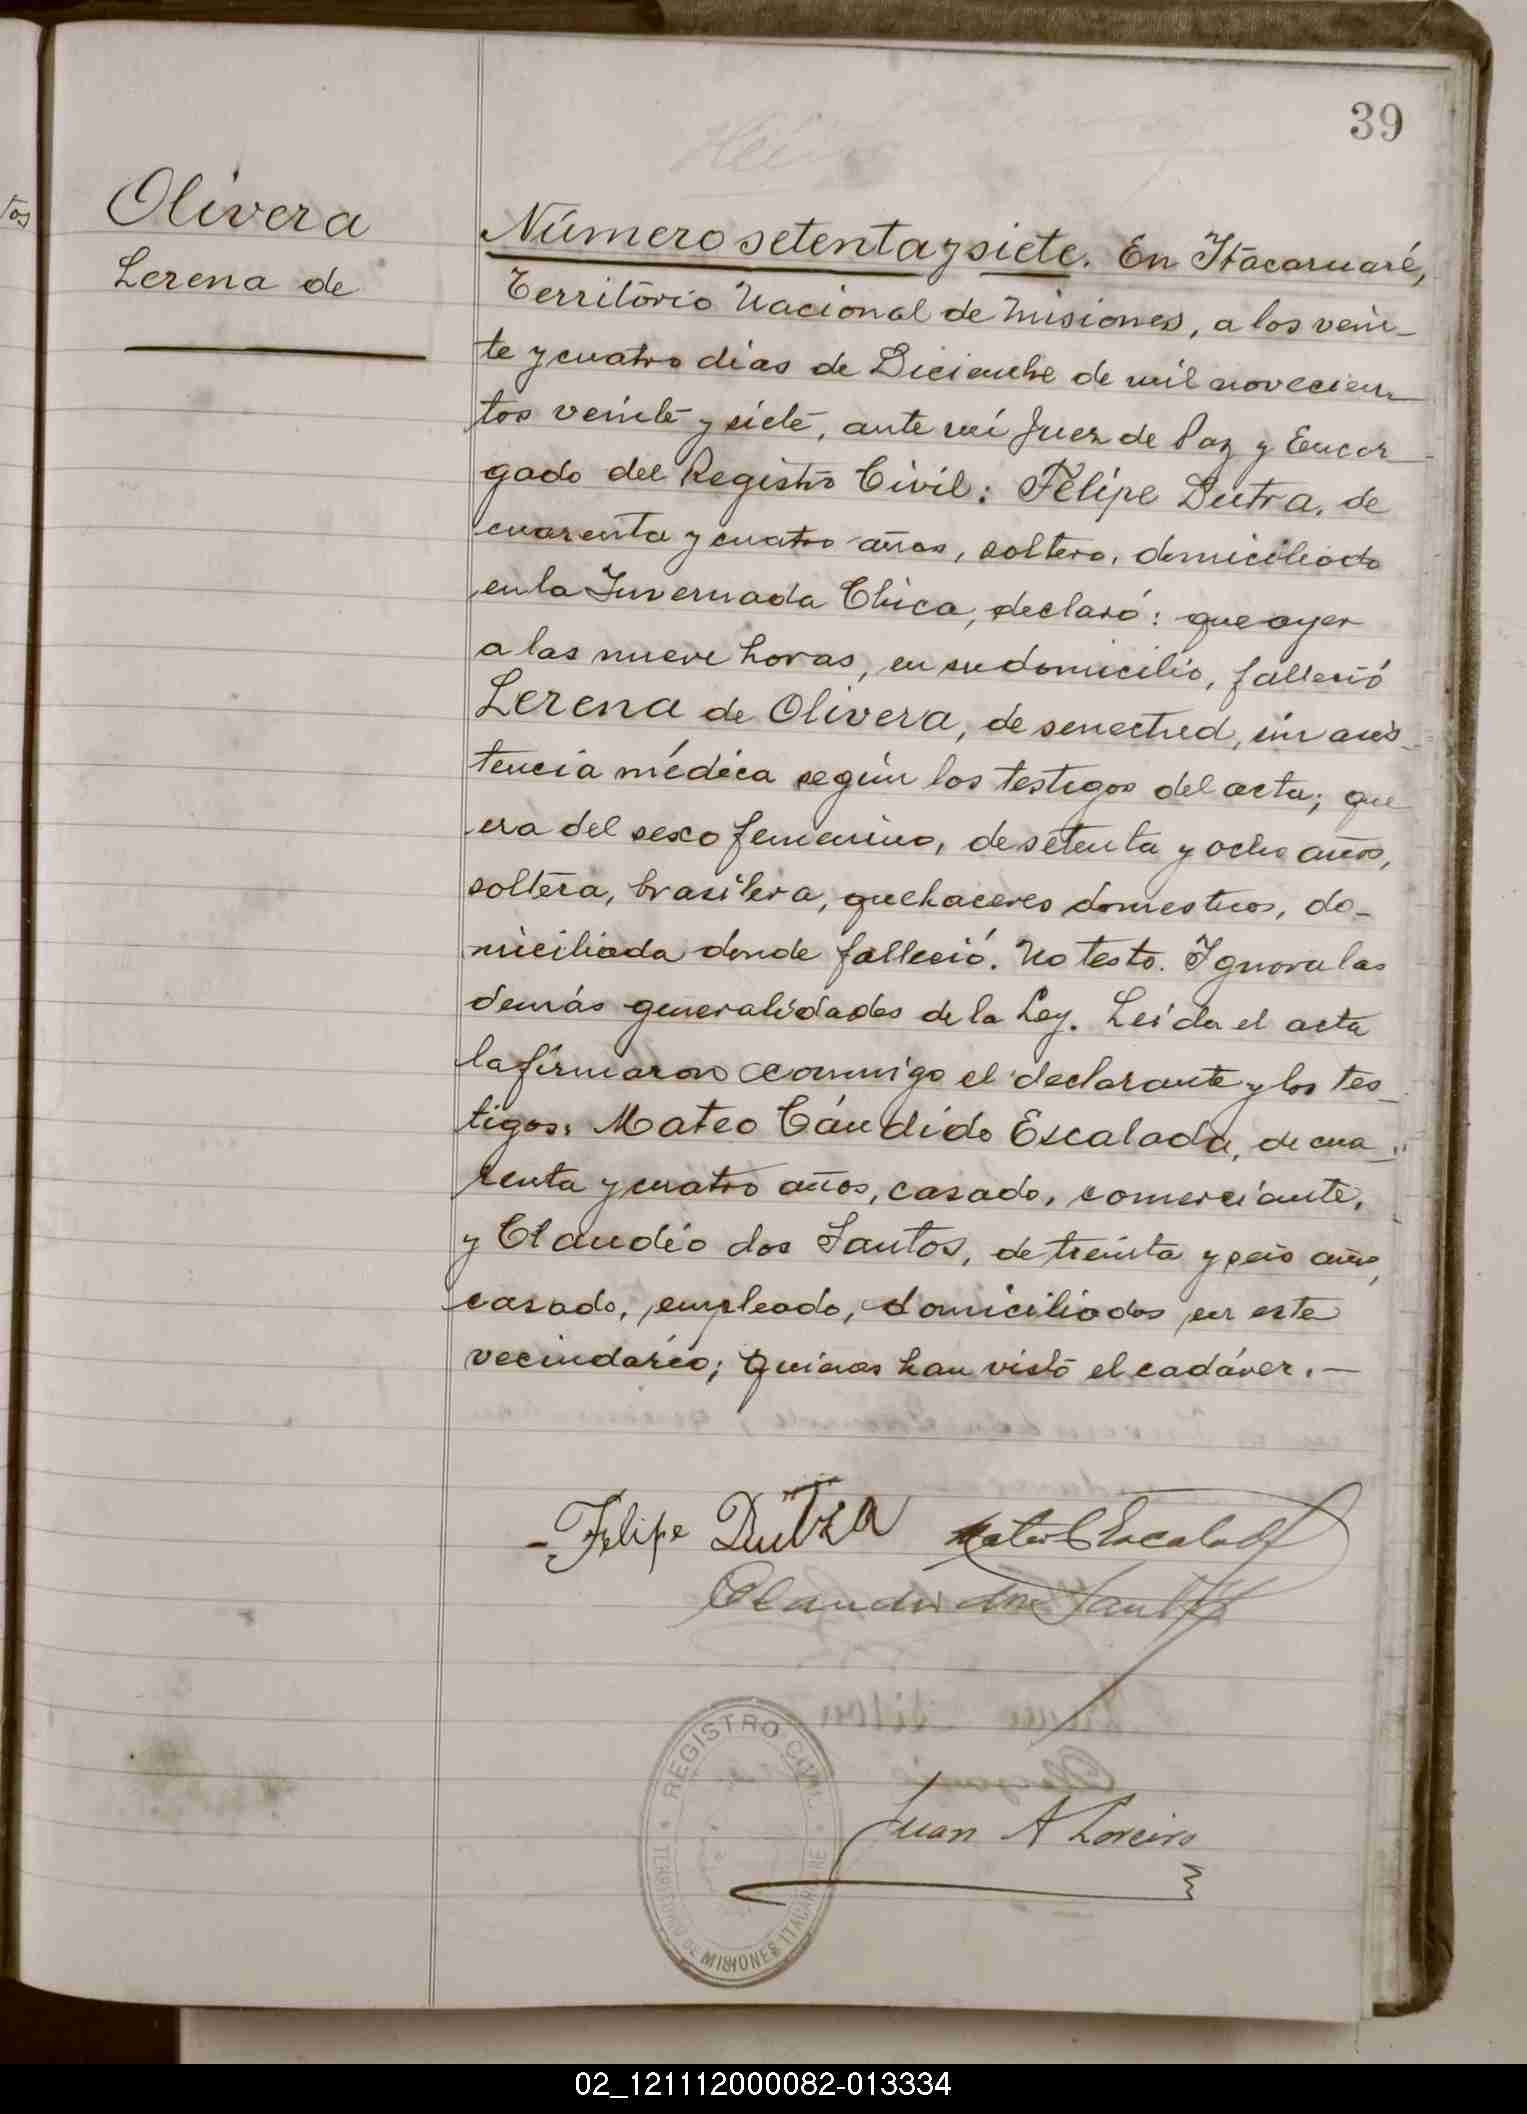 39
tos
Olivera
Lerena de
Número setenta y siete. En Itacaruaré,
Território Nacional de Misiones, a los vein-
te y cuatro dias de Diciembre de mil novecien-
tos veinte y siete, ante mí Juez de Paz y Encar-
gado del Registro Civil: Felipe Dutra, de
cuarenta y cuatro años, soltero, domiciliado
en la Invernada Chica, declaró: que ayer
a las nueve horas, en su domicilio, falleció
Lerena de Olivera, de senectud, sin asis-
tencia médica según los testigos del acta; que
era del sexo femenino, de setenta y ocho años,
soltera, brasilera, quehaceres domesticos, do-
miciliada donde falleció. No testo. Ignora las
demás generalidades de la Ley. Leida el acta
la firmaron conmigo el declarante y los tes-
tigos: Mateo Cándido Escalada, de cua-
renta y cuatro años, casado, comerciante,
y Claudio dos Santos, de treinta y seis años,
casado, empleado, domiciliados en este
vecindario; quienes han visto el cadáver.—
Felipe Dutra Mateo C Escalada
Claudio dos Santos
REGISTRO CIVIL
TERRITORIO DE MISIONES ITACARUARE
Juan A Loreiro
02_121112000082-013334